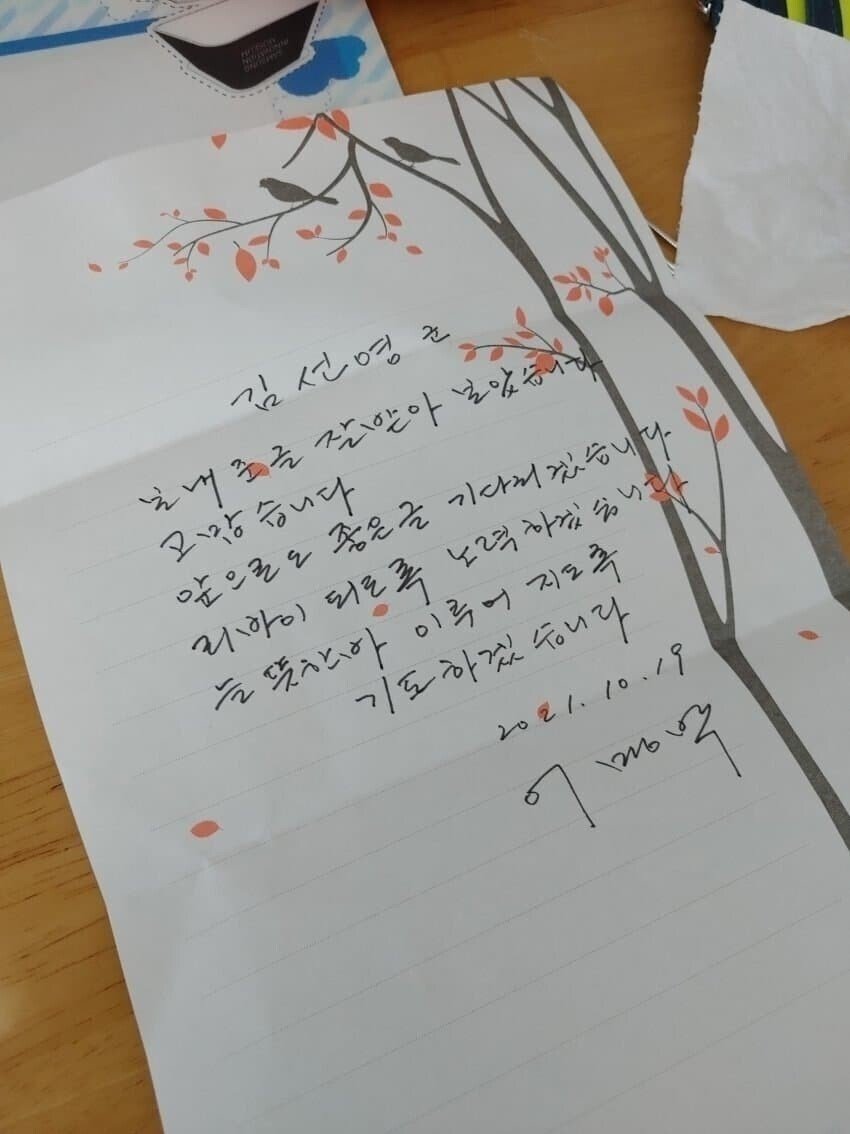 SAMSUNG
INNOVATION
MUSEUM
김선영 군
보내준글 잘받아 보았습니다
고맙습니다
앞으로도 좋은글 기다리겠습니다
되도록 노력하겠습니다
는 뜻한바 이루어 지도록
기도하겠습니다
2021.10.19
이